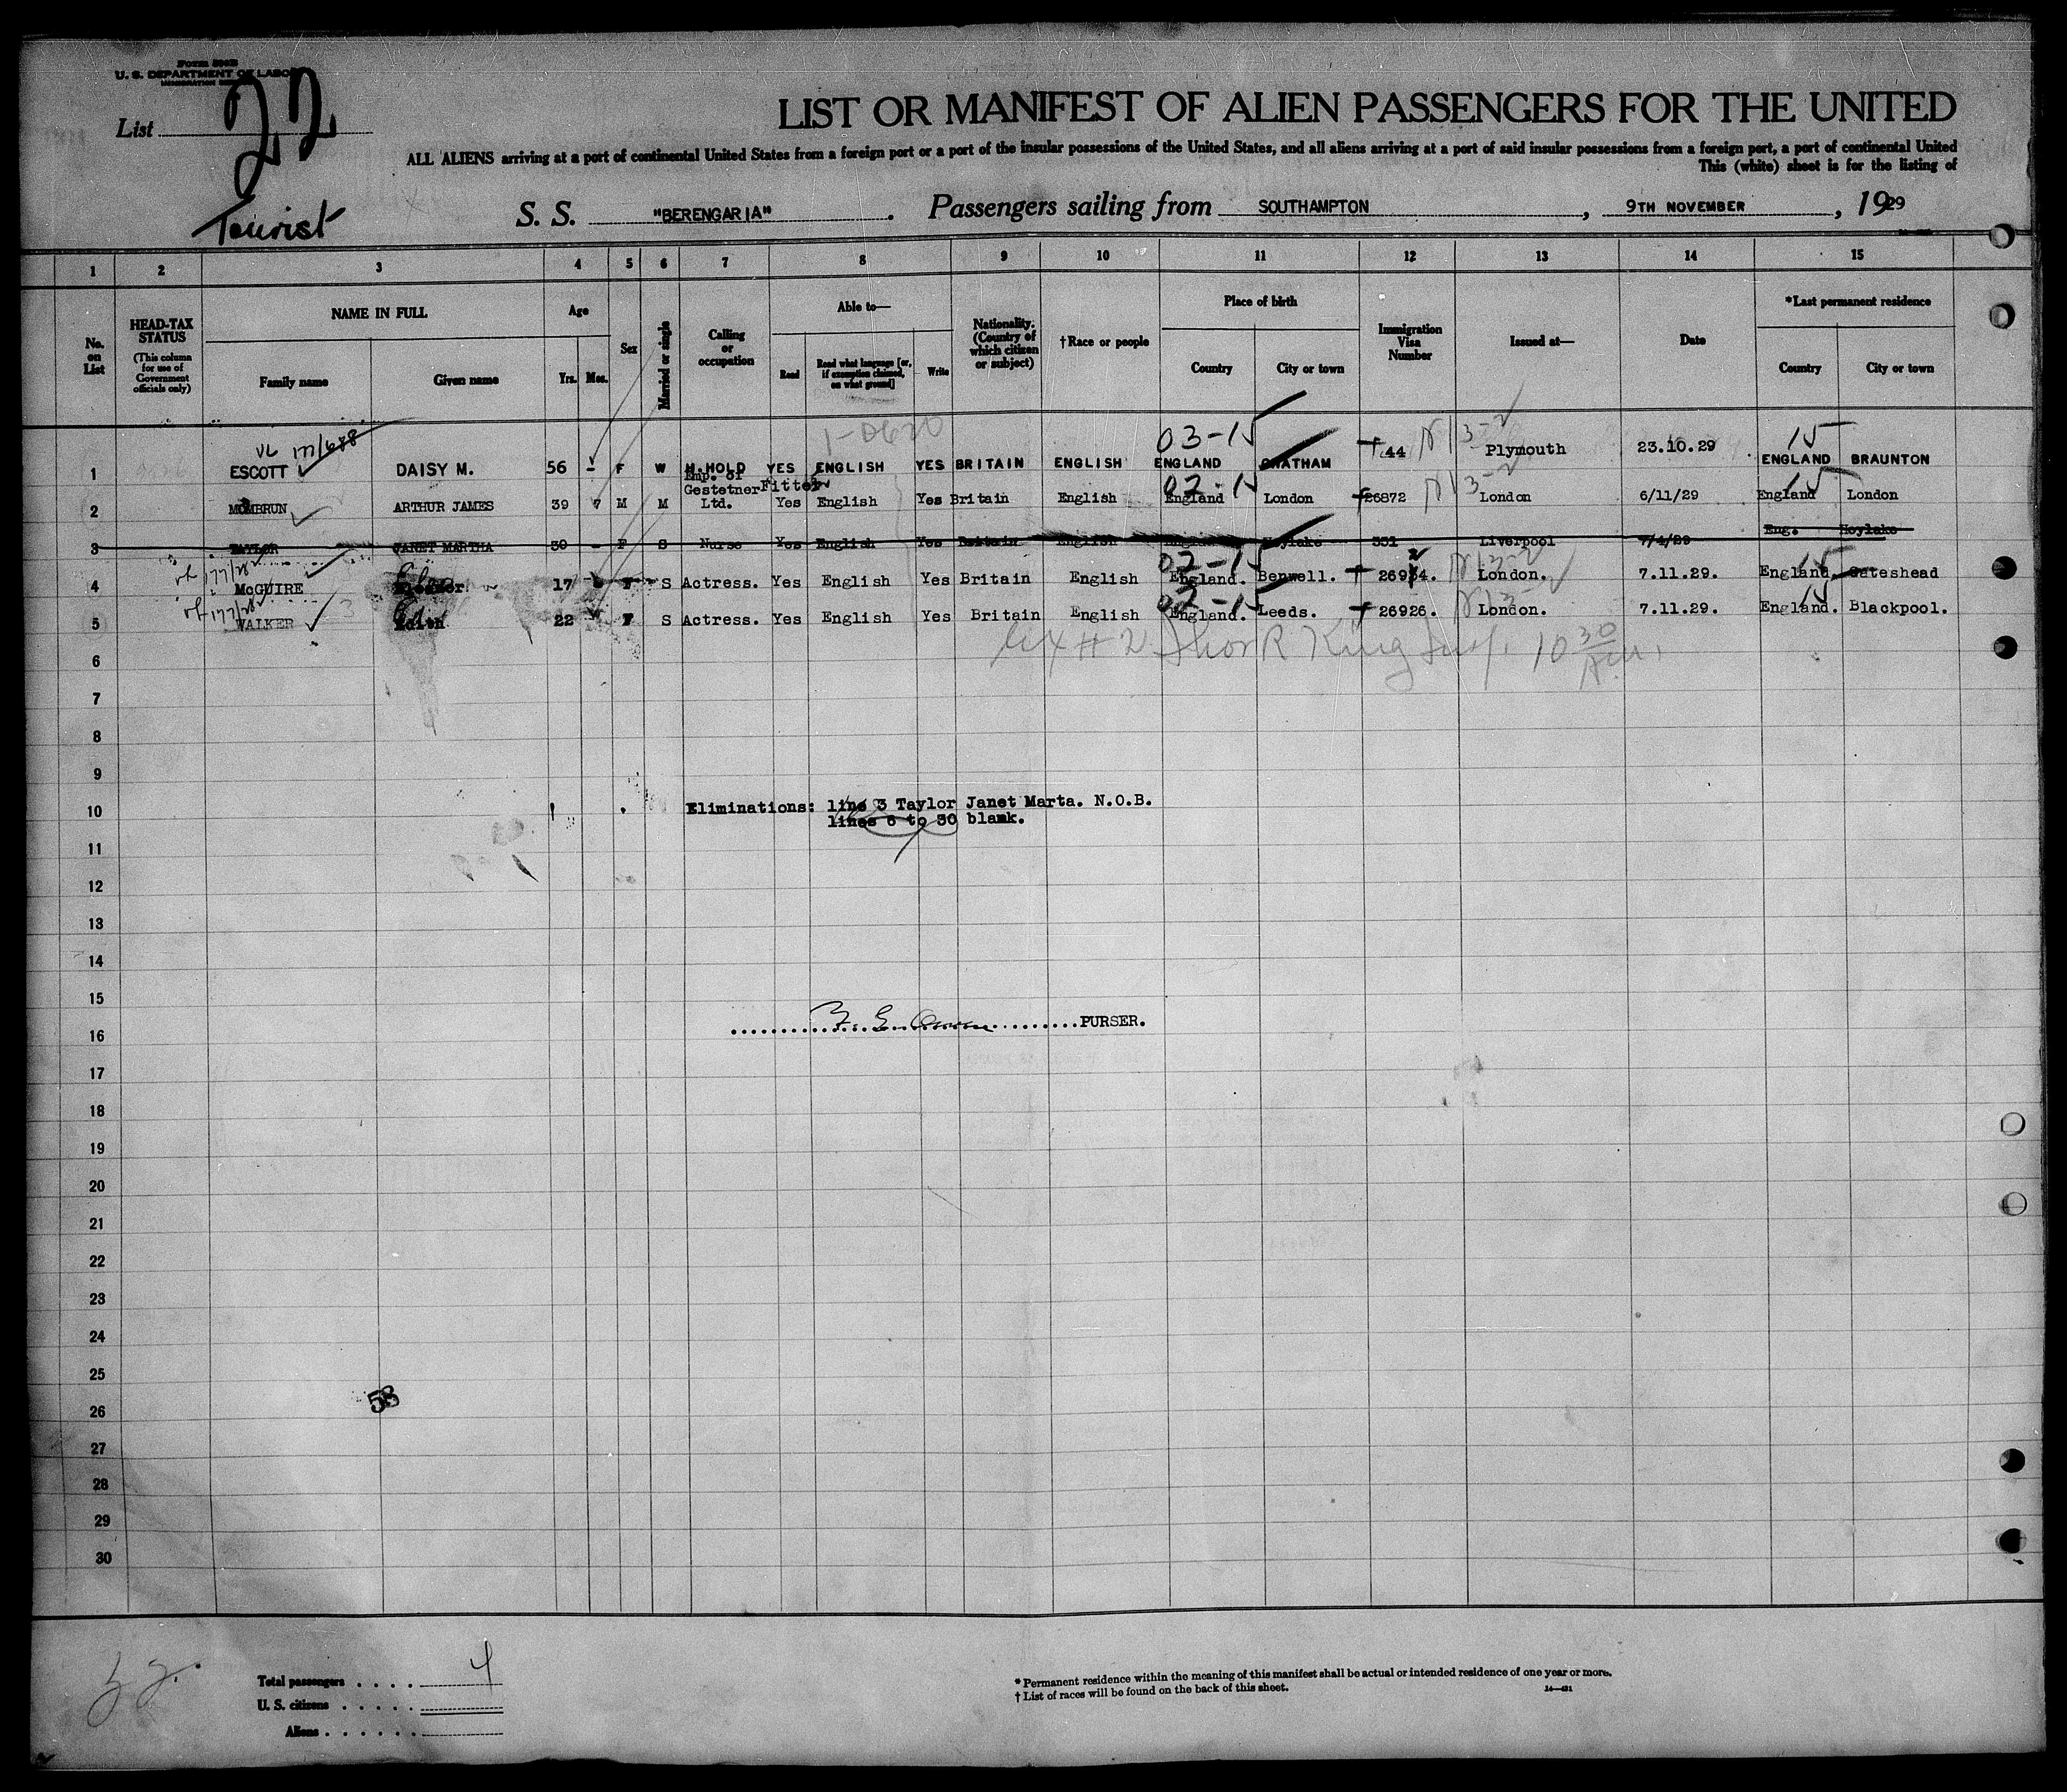 Form 500B
U. S. DEPARTMENT OF LABOR
List 22
Tourist
LIST OR MANIFEST OF ALIEN PASSENGERS FOR THE UNITED
ALL ALIENS arriving at a port of continental United States from a foreign port or a port of the insular possessions of the United States, and all aliens arriving at a port of said insular possessions from a foreign port, a port of continental United
This (white) sheet is for the listing of
S. S. "BERENGARIA". Passengers sailing from SOUTHAMPTON, 9TH NOVEMBER, 1929
1 2 3 4 5 6 7 8 9 10 11 12 13 14 15
No. on List
HEAD-TAX STATUS (This column for use of Government officials only)
NAME IN FULL
Family name Given name
Age
Yrs. Mos.
Sex
Married or single
Calling or occupation
Able to—
Read Read what language [or, if exemption claimed, on what ground] Write
Nationality. (Country of which citizen or subject)
†Race or people
Place of birth
Country City or town
Immigration Visa Number
Issued at—
Date
*Last permanent residence
Country City or town
1 ESCOTT DAISY M. 56 - F W H.HOLD YES ENGLISH YES BRITAIN ENGLISH 03-15 ENGLAND CHATHAM 44 Plymouth 23.10.29 15 ENGLAND BRAUNTON
2 MOMBRUN ARTHUR JAMES 39 7 M M Emp. of Gestetner Ltd. Fitter Yes English Yes Britain English 02-15 England London 26872 London 6/11/29 15 England London
3 TAYLOR JANET MARTHA 30 - F S Nurse Yes English Yes Britain English England Hoylake 331 Liverpool 7/4/29 Eng. Hoylake
4 McGUIRE 17 F S Actress. Yes English Yes Britain English 02-15 England. Benwell. London. 7.11.29. 15 England. Gateshead
5 WALKER Edith 22 F S Actress. Yes English Yes Britain English 02-15 England. Leeds. 26926. London. 7.11.29. 15 England. Blackpool.
6
7
8
9
10 Eliminations: line 3 Taylor Janet Marta. N.O.B.
lines 6 to 30 blank.
11
12
13
14
15
16 PURSER.
17
18
19
20
21
22
23
24
25
58
26
27
28
29
30
Total passengers . . . . 4
U. S. citizens . . . . .
Aliens . . . . . .
* Permanent residence within the meaning of this manifest shall be actual or intended residence of one year or more.
† List of races will be found on the back of this sheet.